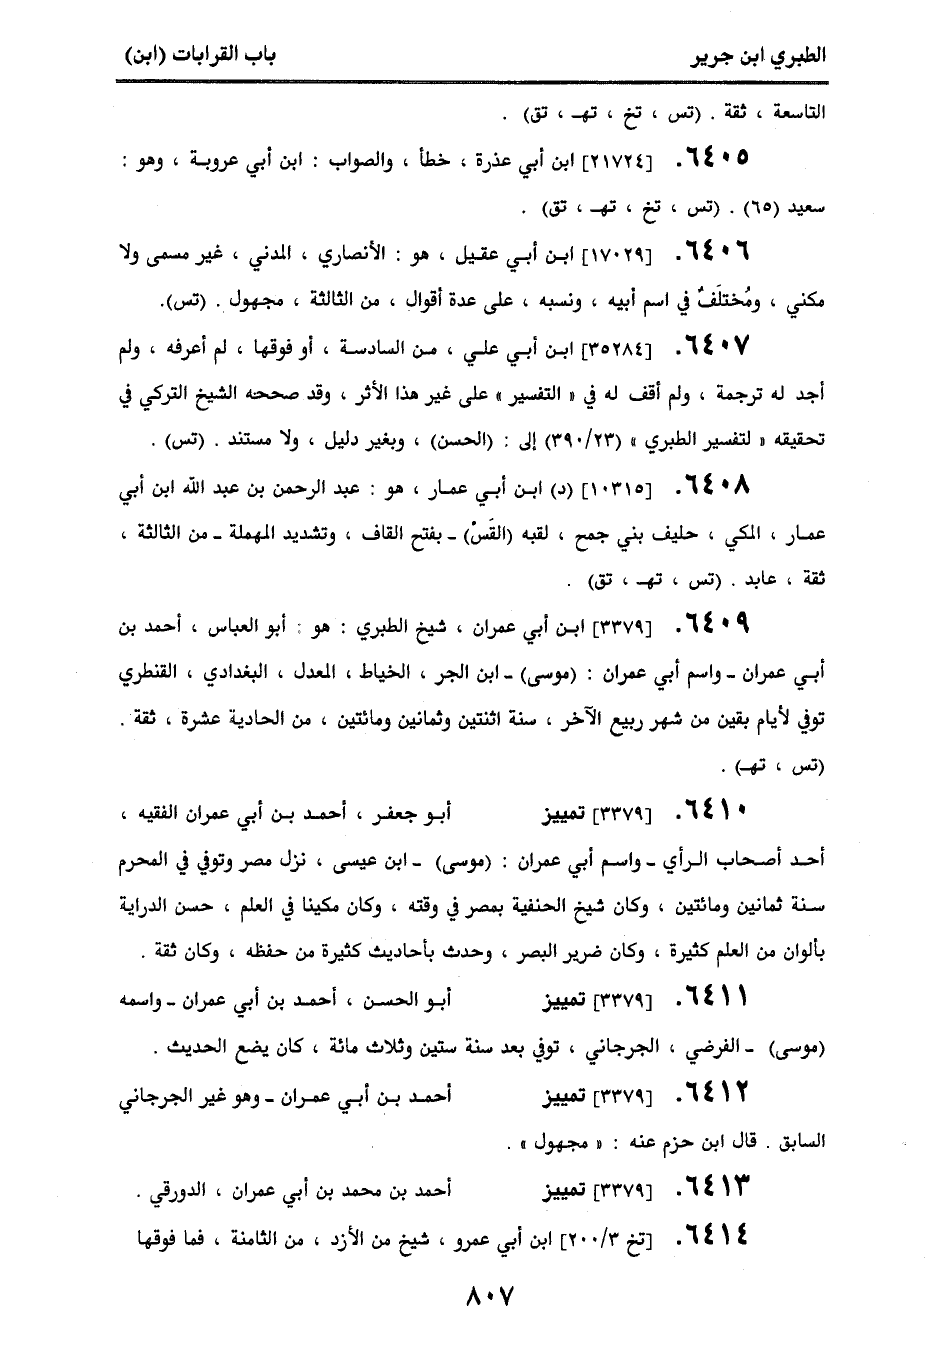 الطبري ابن جرير باب القرابات (ابن)
التاسعة ، ثقة . (تس ، تخ ، تهـ ، تق) .
٦٤٠٥. [٢١٧٢٤] ابن أبي عذرة ، خطأ ، والصواب : ابن أبي عروبة ، وهو :
سعيد (٦٥) . (تس ، تخ ، تهـ ، تق) .
٦٤٠٦. [١٧٠٢٩] ابن أبي عقيل ، هو : الأنصاري ، المدني ، غير مسمى ولا
مكني ، ومُختلَفٌ في اسم أبيه ، ونسبه ، على عدة أقوال ، من الثالثة ، مجهول . (تس).
٦٤٠٧. [٣٥٢٨٤] ابن أبي علي ، من السادسة ، أو فوقها ، لم أعرفه ، ولم
أجد له ترجمة ، ولم أقف له في « التفسير » على غير هذا الأثر ، وقد صححه الشيخ التركي في
تحقيقه « لتفسير الطبري » (٣٩٠/٢٣) إلى : (الحسن) ، وبغير دليل ، ولا مستند . (تس) .
٦٤٠٨. [١٠٣١٥] (د) ابن أبي عمار ، هو : عبد الرحمن بن عبد الله ابن أبي
عمار ، المكي ، حليف بني جمح ، لقبه (القَسْ) ـ بفتح القاف ، وتشديد المهملة ـ من الثالثة ،
ثقة ، عابد . (تس ، تهـ ، تق) .
٦٤٠٩. [٣٣٧٩] ابن أبي عمران ، شيخ الطبري : هو : أبو العباس ، أحمد بن
أبي عمران ـ واسم أبي عمران : (موسى) ـ ابن الجر ، الخياط ، المعدل ، البغدادي ، القنطري
توفي لأيام بقين من شهر ربيع الآخر ، سنة اثنتين وثمانين ومائتين ، من الحادية عشرة ، ثقة .
(تس ، تهـ) .
٦٤١٠. [٣٣٧٩] تمييز أبو جعفر ، أحمد بن أبي عمران الفقيه ،
أحد أصحاب الرأي ـ واسم أبي عمران : (موسى) ـ ابن عيسى ، نزل مصر وتوفي في المحرم
سنة ثمانين ومائتين ، وكان شيخ الحنفية بمصر في وقته ، وكان مكينا في العلم ، حسن الدراية
بألوان من العلم كثيرة ، وكان ضرير البصر ، وحدث بأحاديث كثيرة من حفظه ، وكان ثقة .
٦٤١١. [٣٣٧٩] تمييز أبو الحسن ، أحمد بن أبي عمران ـ واسمه
(موسى) ـ الفرضي ، الجرجاني ، توفي بعد سنة ستين وثلاث مائة ، كان يضع الحديث .
٦٤١٢. [٣٣٧٩] تمييز أحمد بن أبي عمران ـ وهو غير الجرجاني
السابق . قال ابن حزم عنه : « مجهول » .
٦٤١٣. [٣٣٧٩] تمييز أحمد بن محمد بن أبي عمران ، الدورقي .
٦٤١٤. [تخ ٢٠٠/٣] ابن أبي عمرو ، شيخ من الأزد ، من الثامنة ، فما فوقها
٨٠٧